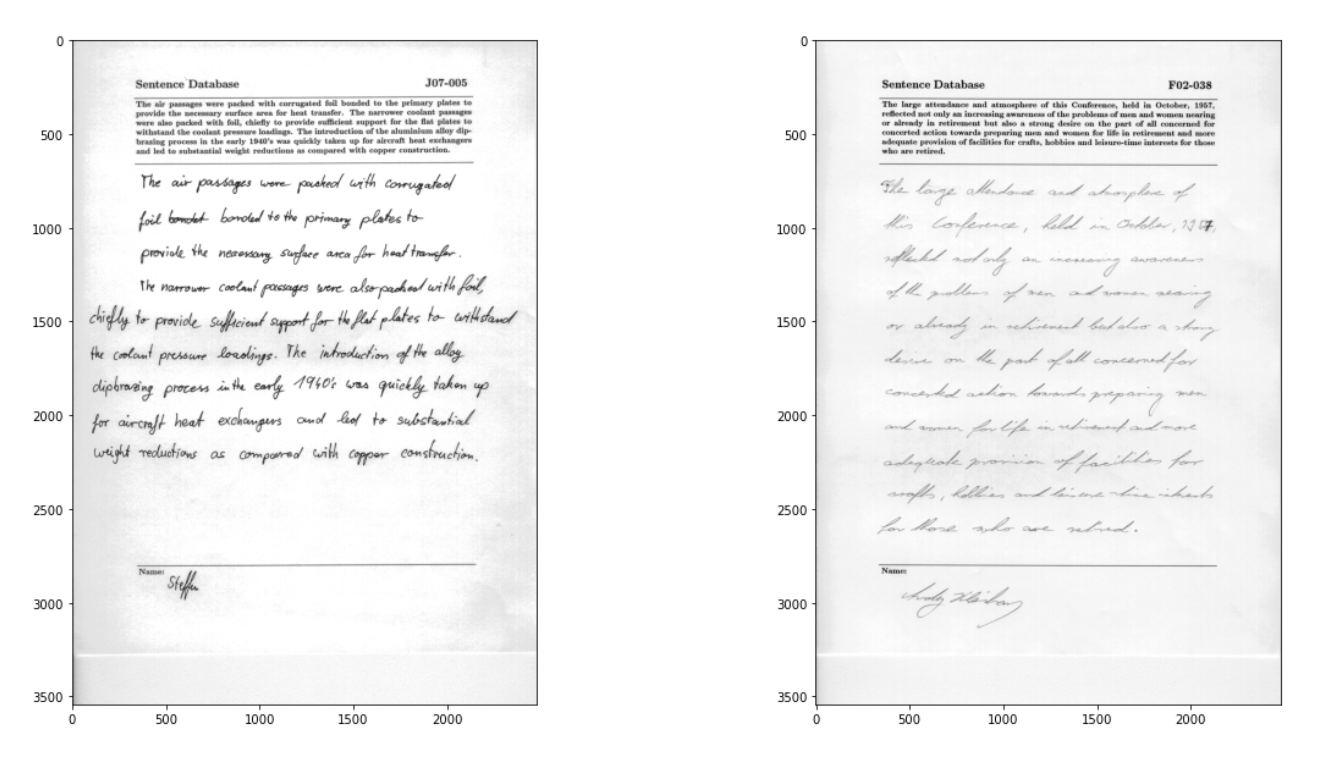 0
500
1000
1500
2000
2500
3000
3500
0
500
1000
1500
2000
Sentence Database J07-005
The air passages were packed with corrugated foil bonded to the primary plates to
provide the necessary surface area for heat transfer. The narrower coolant passages
were also packed with foil, chiefly to provide sufficient support for the flat plates to
withstand the coolant pressure loadings. The introduction of the aluminium alloy dip-
brazing process in the early 1940's was quickly taken up for aircraft heat exchangers
and led to substantial weight reductions as compared with copper construction.
The air passages were packed with corrugated
foil bonded to the primary plates to
provide the necessary surface area for heat transfer.
The narrower coolant passages were also packed with foil,
chiefly to provide sufficient support for the flat plates to withstand
the coolant pressure loadings. The introduction of the alloy
dipbrazing process in the early 1940's was quickly taken up
for aircraft heat exchangers and led to substantial
weight reductions as compared with copper construction.
Name:
Steffen
0
500
1000
1500
2000
2500
3000
3500
0
500
1000
1500
2000
Sentence Database F02-038
The large attendance and atmosphere of this Conference, held in October, 1957,
reflected not only an increasing awareness of the problems of men and women nearing
or already in retirement but also a strong desire on the part of all concerned for
concerted action towards preparing men and women for life in retirement and more
adequate provision of facilities for crafts, hobbies and leisure-time interests for those
who are retired.
The large attendance and atmosphere of
this Conference, held in October, 1957,
reflected not only an increasing awareness
of the problems of men and women nearing
or already in retirement but also a strong
desire on the part of all concerned for
concerted action towards preparing men
and women for life in retirement and more
adequate provision of facilities for
crafts, hobbies and leisure-time interests
for those who are retired.
Name: